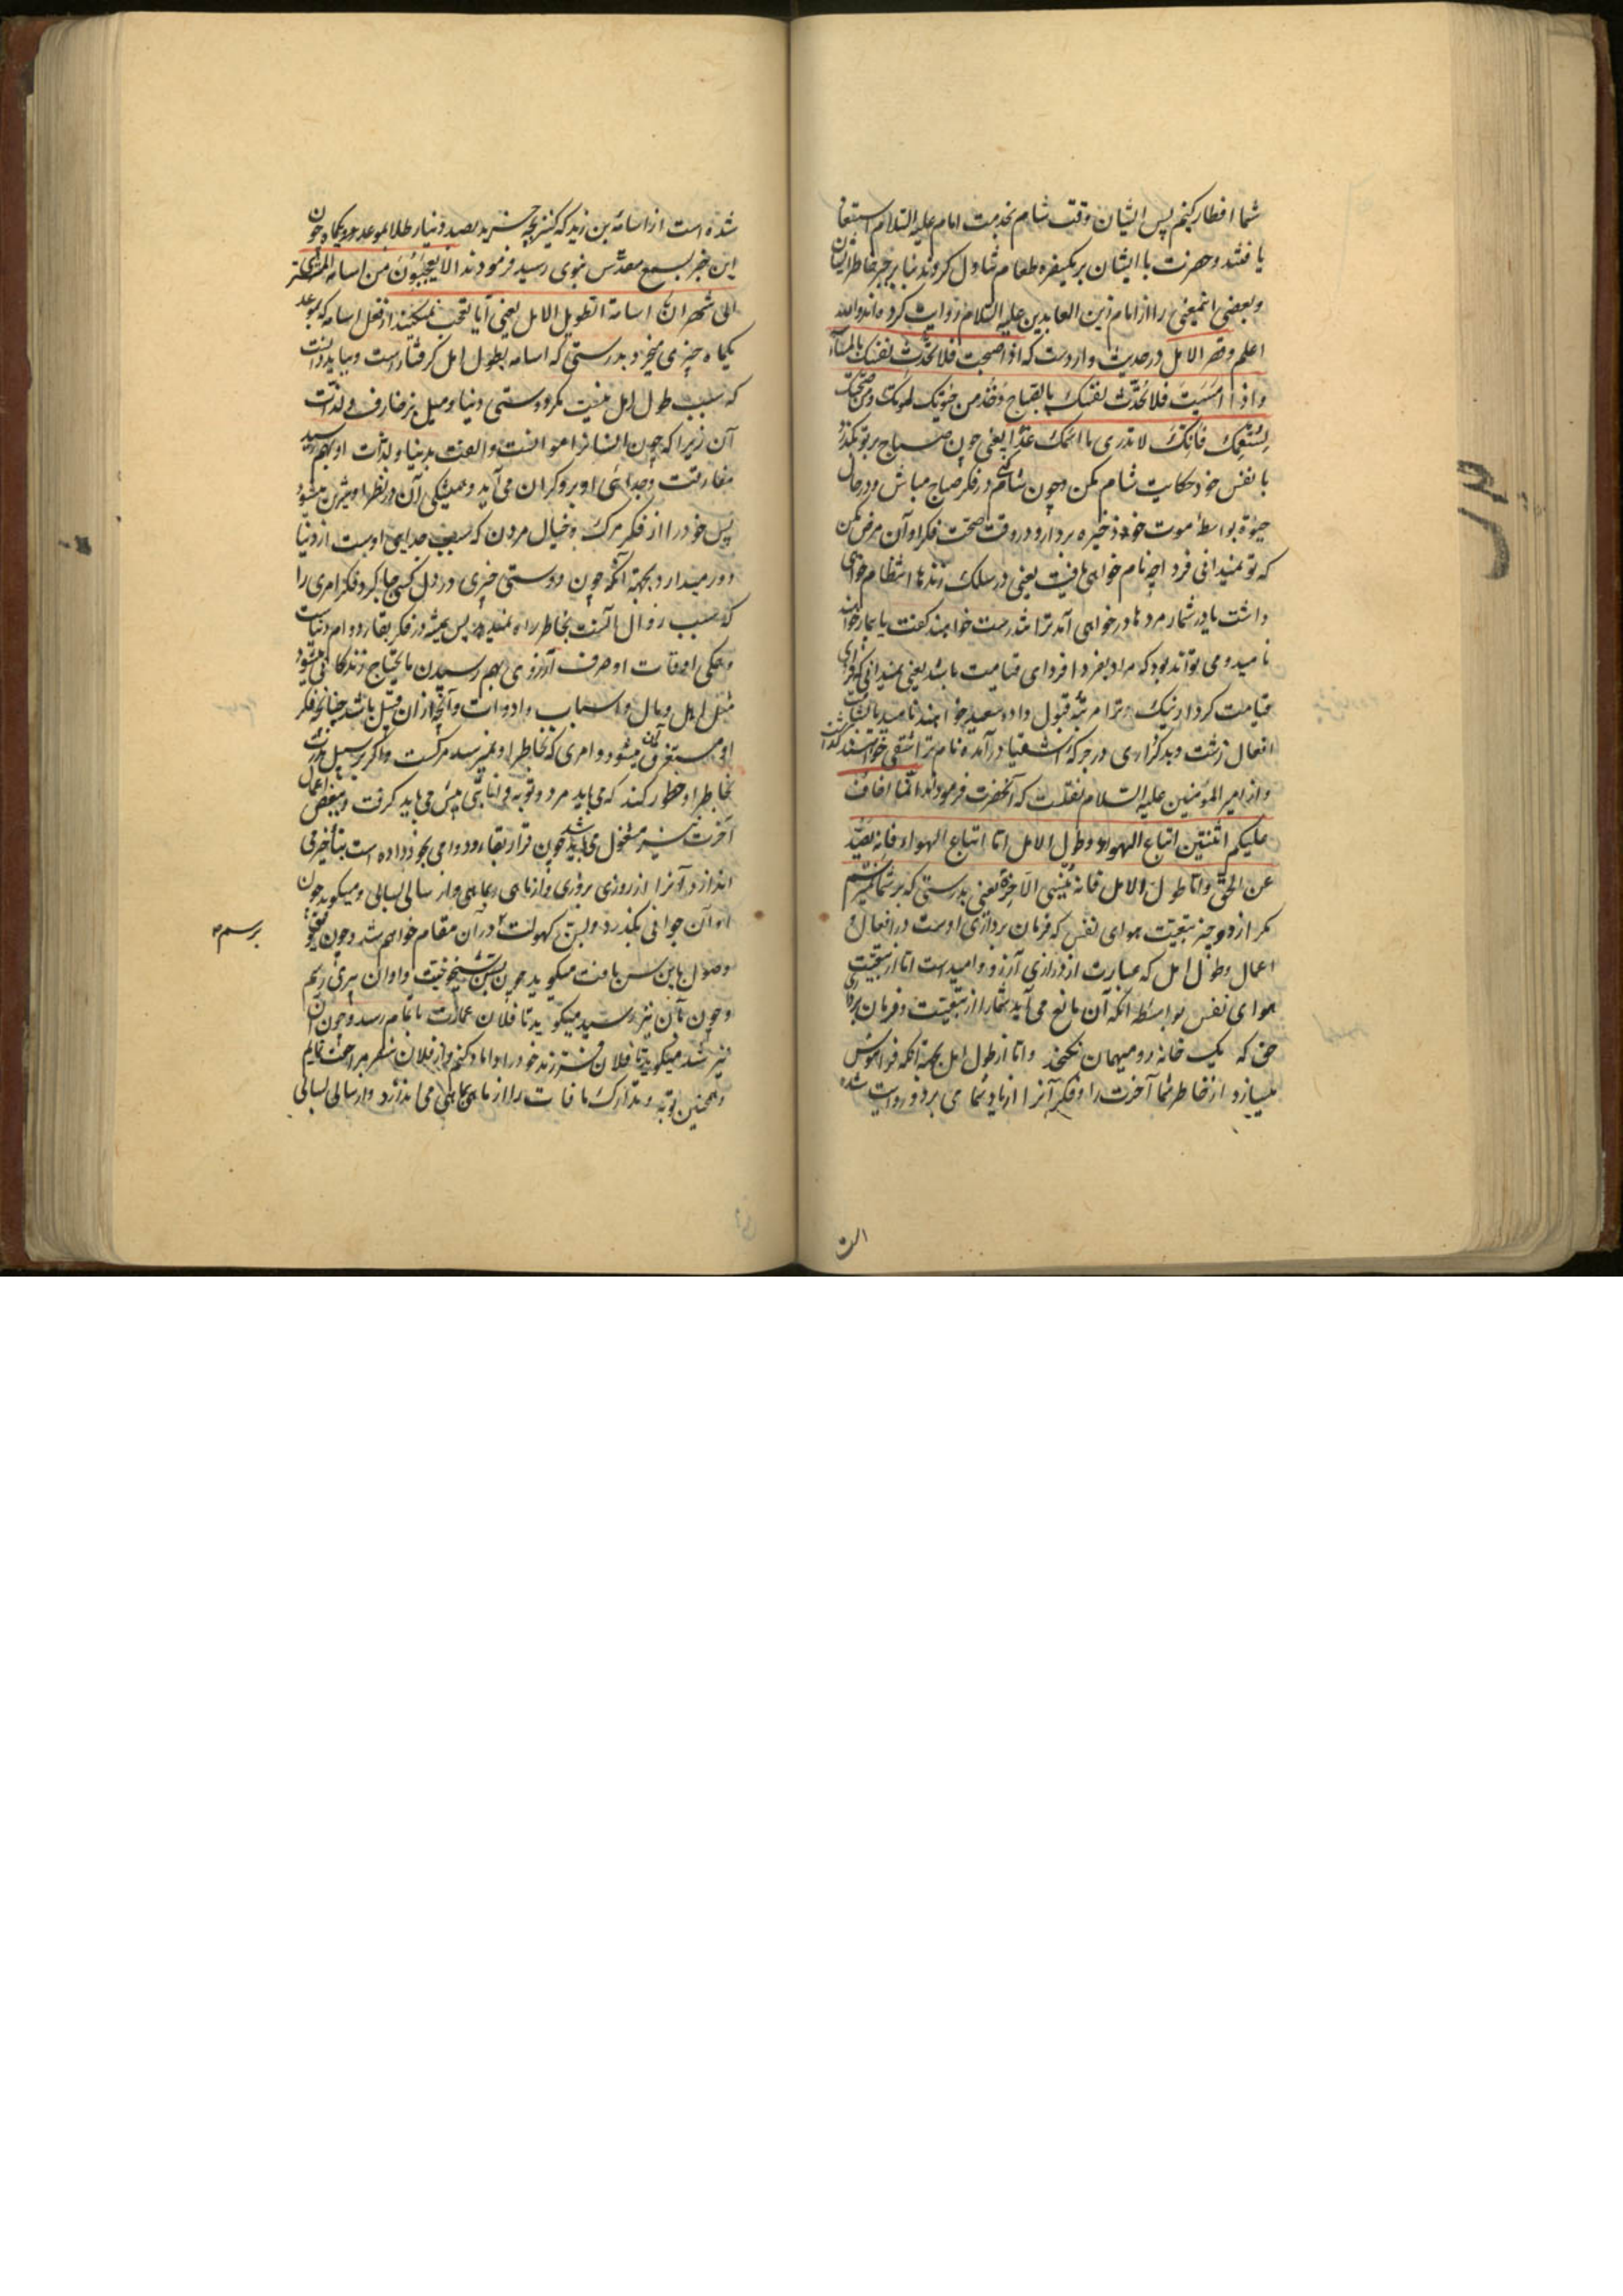 شما افطار کنیم پس ایشان وقت شام بخدمت امام علیه السلام استسعاد
یافتند و حضرت با ایشان بریکسفره طعام تناول کردند بنا بر جبر خاطر ایشان
و بعضی اینمعنی را از امام زین العابدین علیه السلام روایت کرده اند والله
اعلم و قصر الامل در حدیث واردست که اذا اصبحت فلا تحدث نفسک بالمساء
و اذا امسیت فلا تحدث نفسک بالصباح وخذ من حیوتک لموتک ومن صحتک
لسقمک فانک لا تدری ما اسمک غدا یعنی چون صباح بر تو بگذرد
با نفس خود حکایت شام مکن و چون شام کنی در فکر صباح مباش و در حال
حیوة بواسطهٔ موت خود ذخیره بردار و در وقت صحت فکر اوان مرض بکن
که تو نمیدانی فردا چه نام خواهی یافت یعنی در سلک زندها انتظام خواهی
داشت یا در شمار مردها در خواهی آمد ترا تندرست خواهند گفت یا بیمار خواهند
نامید و می تواند بود که مراد بفردا فردای قیامت باشد یعنی نمیدانی که فردای
قیامت کردار نیک ترا مرتبهٔ قبول داده سعید خواهند نامید یا بشامت
افعال زشت و بدکرداری در جرکهٔ اشقیا درآمده نام ترا شقی خواهند گذاشت
و از امیر المومنین علیه السلام نقلست که آنحضرت فرمودند انما اخاف
علیکم اثنتین اتباع الهواء و طول الامل اما اتباع الهواء فانه یصد
عن الحق و اما طول الامل فانه ینسی الآخرة یعنی بدرستی که بر شما نمیترسم
مکر از دو چیز تبعیت هوای نفس که فرمان برداری اوست در افعال و
اعمال و طول امل که عبارت از درازی آرزو و امیدست اما از تبعیت
هوای نفس بواسطه آنکه آن مانع می آید شما را از تبعیت و فرمان برداری
حق که یک خانه دو میهمان نکنجد و اما از طول امل بجهة آنکه فراموش
میسازد از خاطر شما آخرت را و فکر آنرا از یاد شما می برد و روایت شده
الت
شده است از اسامة بن زید که کنیزکی خرید بصد دینار طلا بموعد یکماه چون
این خبر بسمع مقدس نبوی رسید فرمودند الا تعجبون من اسامة المشتری
الی شهر ان اسامة لطویل الامل یعنی آیا تعجب نمیکنند از فعل اسامه که بموعد
یکماه چیزی میخرد بدرستی که اسامه بطول امل گرفتارست و بباید دانست
که سبب طول امل نیست مکر دوستی دنیا و میل بزخارف و لذات
آن زیرا که چون انسانرا موانست و الفت بدنیا و لذات او بهم رسید
مفارقت و جدائی او برو کران می آید و همیشکی آن در نظر او شیرین میشود
پس خود را از فکر مرک و خیال مردن که سبب جدایی اوست از دنیا
دور میدارد بجهة آنکه چون دوستی چیزی در دل کسی جا کرد فکر امری را
که سبب زوال آنست بخاطر راه نمیدهد پس همیشه در فکر بقا و دوام دنیاست
و همکی اوقات او صرف آرزوی بهم رسیدن مایحتاج زندکانی میشود
مثل اهل و مال و اسباب و ادوات و آنچه از ان قبیل باشد چنانچه فکر
او مستغرق آن میشود و امری که بخاطر او نمیرسد مرکست و اکر بر سبیل ندرت
بخاطر او خطور کند که می باید مرد و توبه و انابتی پیش می باید کرفت و ببعض اعمال
آخرت نیز مشغول می باید شد چون قرار بقا و دوامی بخود داده است بتاخیر می
اندازد آنرا از روزی بروزی و از ماهی بماهی و از سالی بسالی و میکوید چون
اوان جوانی بگذرد و بسن کهولت در آن مقام خواهم شد و چون توفیق
وصول باین سن یافت میکوید چون بسن شیخوخیت و اوان پیری رسم
و چون بآن نیز رسید میکوید تا فلان عمارت باتمام رسد و چون آن
نیز شد میکوید تا فلان فرزند خود را داماد کنم و از فلان سفر مراجعت نمایم
و همچنین توبه و تدارک مافات را از ماهی بماهی می اندازد و از سالی بسالی
برسم